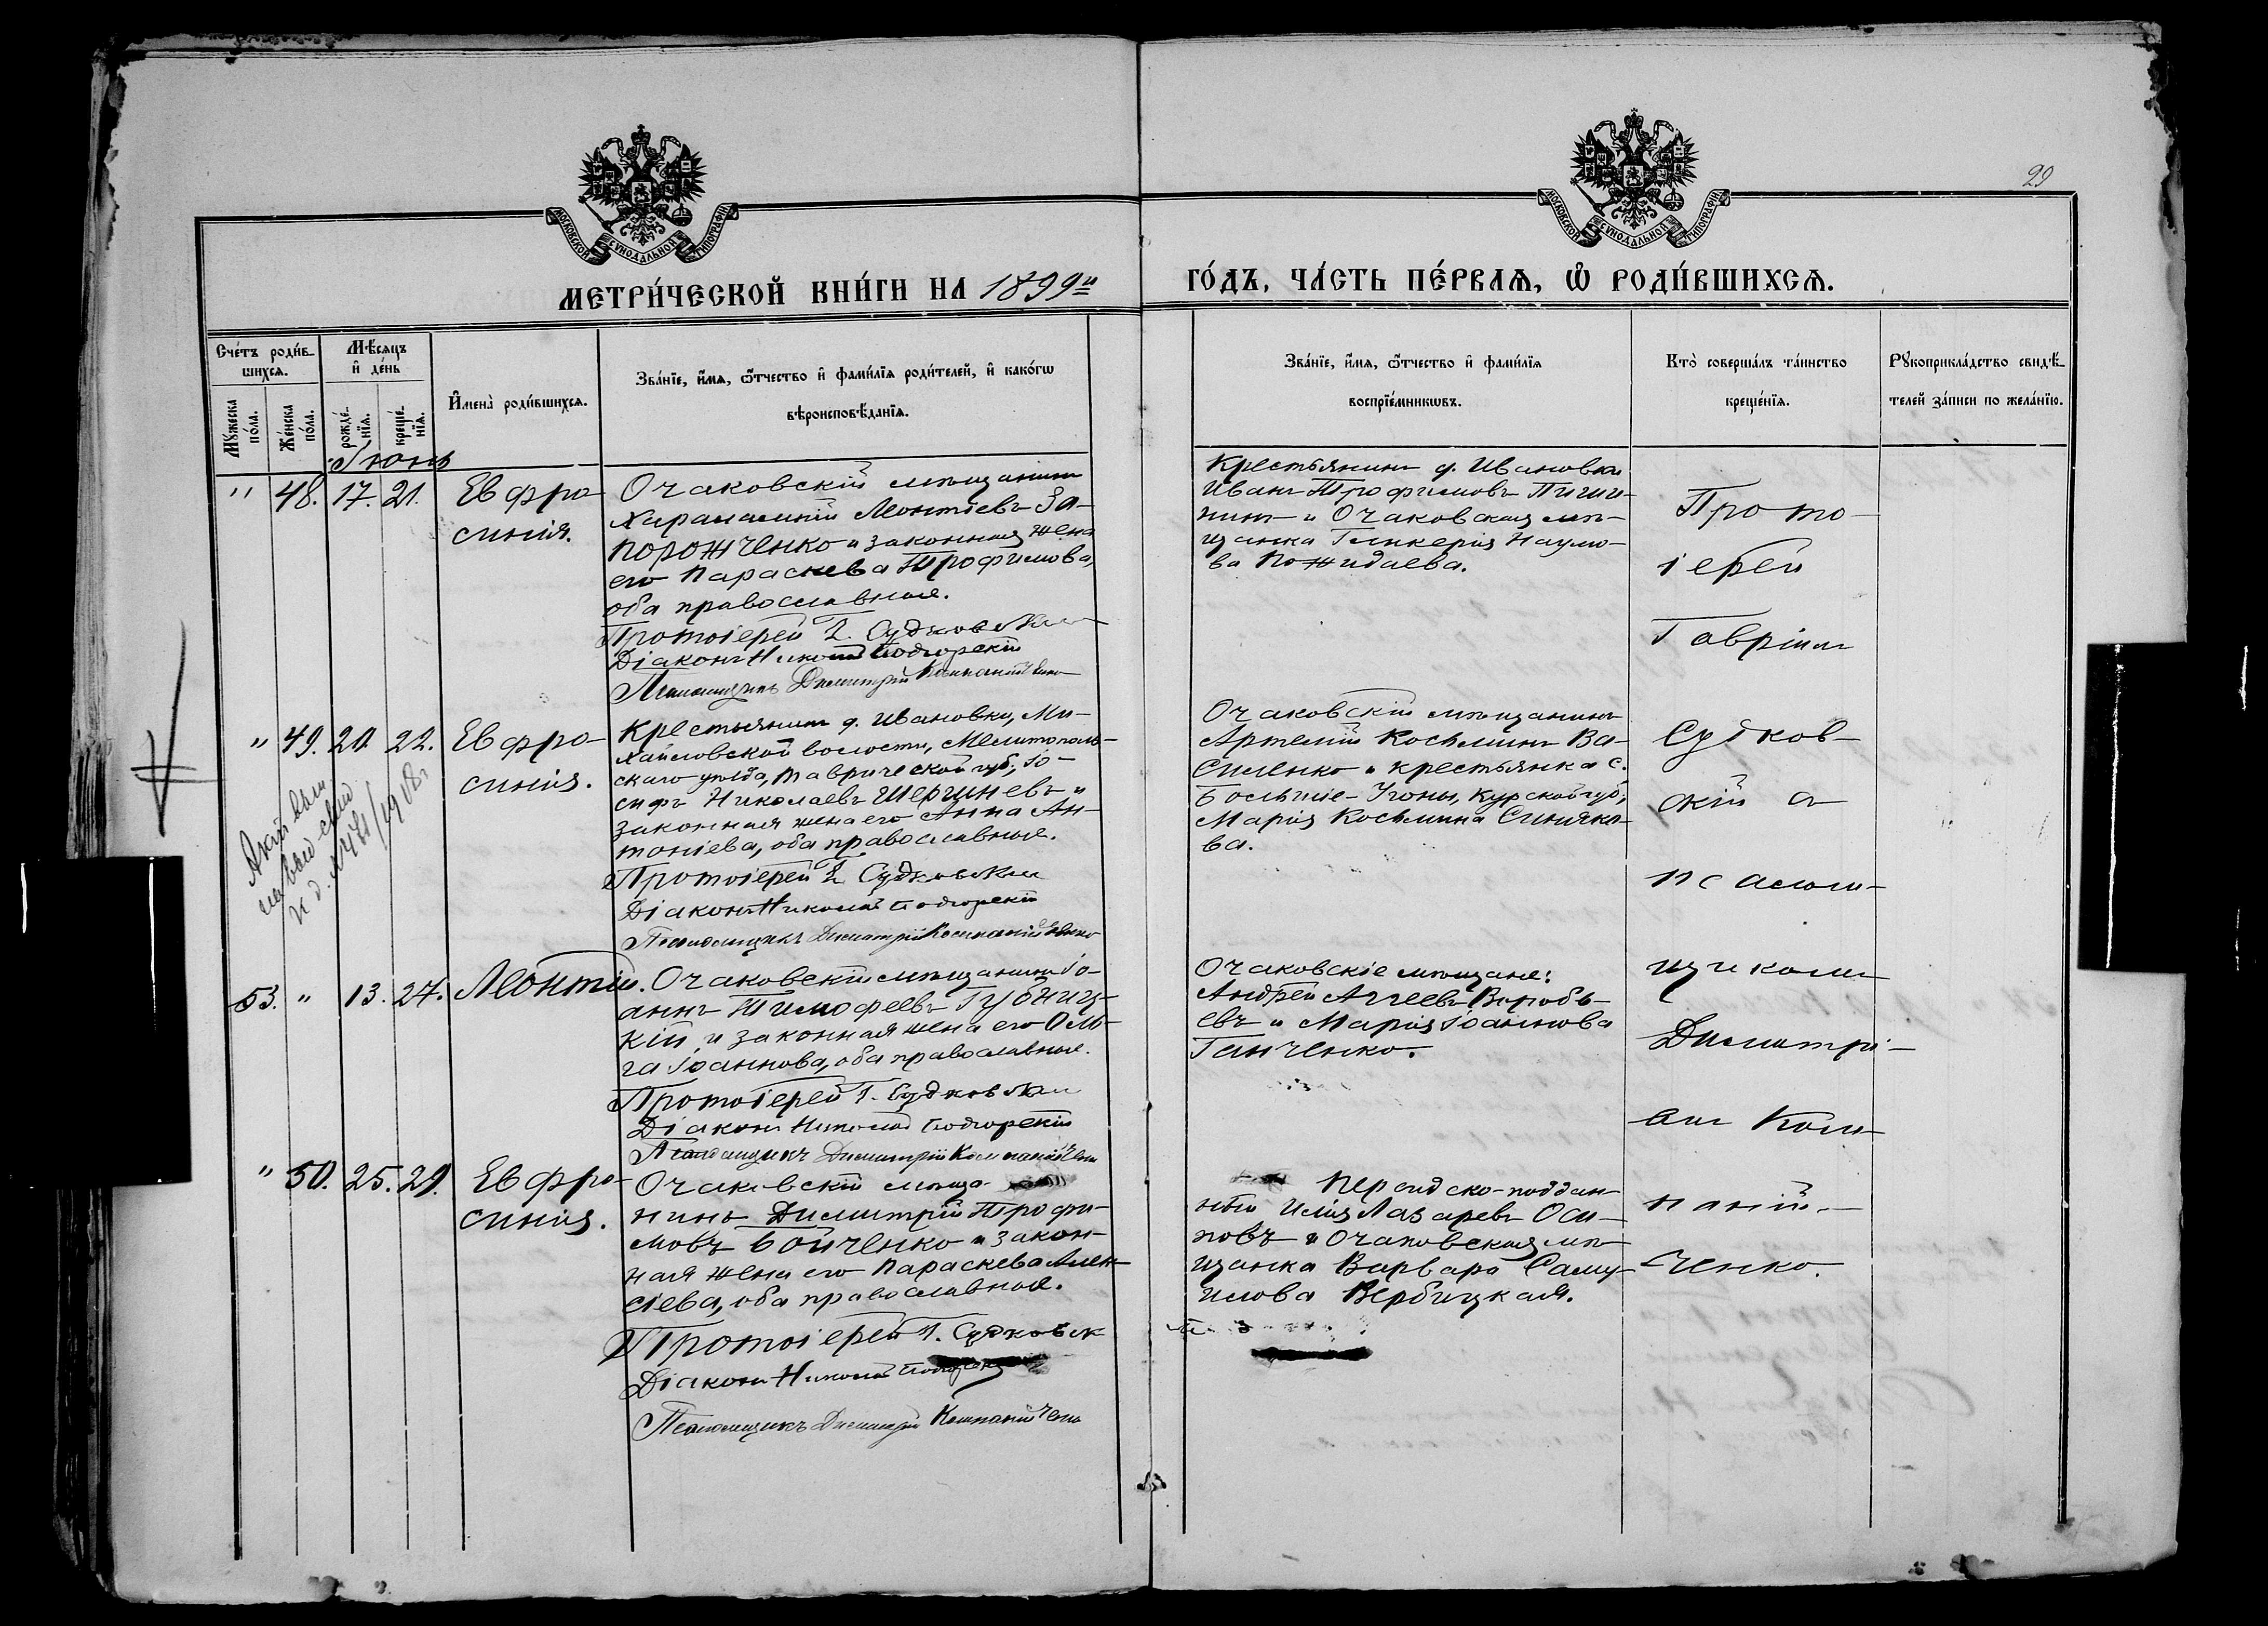 29
МОСКОВСКОЙ СѴНОДАЛЬНОЙ ТИПОГРАФІИ
МОСКОВСКОЙ СѴНОДАЛЬНОЙ ТИПОГРАФІИ
МЕТРИ́ЧЕСКОЙ КНИ́ГИ НА 1899й
ГО́ДЪ, ЧА́СТЬ ПЕ́РВАѦ, Ѡ҆ РОДИ́ВШИХСѦ.
Сче́тъ роди́в-
шихсѧ.
Мѣ́сѧцъ
и҆ де́нь
Мꙋ́жеска по́ла.
Же́нска по́ла.
рожде́-
нїѧ.
креще́-
нїѧ.
И҆мена̀ роди́вшихсѧ.
Зва́нїе, и҆́мѧ, ѻ҆́тчество и҆ фами́лїѧ роди́телей, и҆ како́гѡ
вѣроисповѣ́данїѧ.
Зва́нїе, и҆́мѧ, ѻ҆́тчество и҆ фами́лїѧ
воспрїе́мникѡвъ.
Кто̀ соверша́лъ та́инство
креще́нїѧ.
Рꙋкоприкла́дство свидѣ́-
телей за́писи по жела́нїю.
Іюнь
" 48. 17. 21. Евфро-
синія.
Очаковскій мѣщанинъ
Харалампій Леонтіевъ За-
порожченко и законная жена
его Параскева Трофимова,
оба православные.
Протоіерей Г. Судковскій
Діаконъ Николай Подгорскій
Псаломщикъ Димитрій Компанійченко
Крестьянинъ д. Ивановки
Иванъ Трофимовъ
и Очаковская мѣ-
щанка Гликерія Наумо-
ва Пожидаева.
" 49. 20. 22. Евфро-
синія.
Крестьянинъ д. Ивановки, Ми-
хайловской волости, Мелитополь-
скаго уѣзда, Таврической губ., Іо-
сифъ Николаевъ Шершневъ и
законная жена его Анна Ан-
тоніева, оба православные.
Протоіерей Г. Судковскій
Діаконъ Николай Подгорскій
Псаломщикъ Димитрій Компанійченко
Очаковскій мѣщанинъ
Артемій Косьминъ Ва-
силенко и крестьянка с.
Большіе-Угоны, Курской губ.,
Марія Косьмина Синяко-
ва.
53. " 13. 27. Леонтій.
Очаковскій мѣщанинъ Іо-
аннъ Тимофеевъ Губниц-
кій и законная жена его Оль-
га Іоаннова, оба православные.
Протоіерей Г. Судковскій
Діаконъ Николай Подгорскій
Псаломщикъ Димитрій Компанійченко
Очаковскіе мѣщане:
Андрей Аггеевъ Воробь-
евъ и Марія Іоаннова
Ганченко.
" 50. 25. 29. Евфро-
синія.
Очаковскій мѣща-
нинъ Димитрій Трофи-
мовъ Бойченко и закон-
ная жена его Параскева Алек-
сіева, оба православные.
Протоіерей Г. Судковск
Діаконъ Николай Подгорскій
Псаломщикъ Димитрій Компанійченко
Персидско-поддан-
ный Илія Лазаревъ Оси-
повъ и Очаковская мѣ-
щанка Варвара Саму-
илова Вербицкая.
Прото-
іерей
Гавріилъ
Судков-
скій съ
псалом-
щикомъ
Димитрі-
емъ Ком-
паній-
ченко.